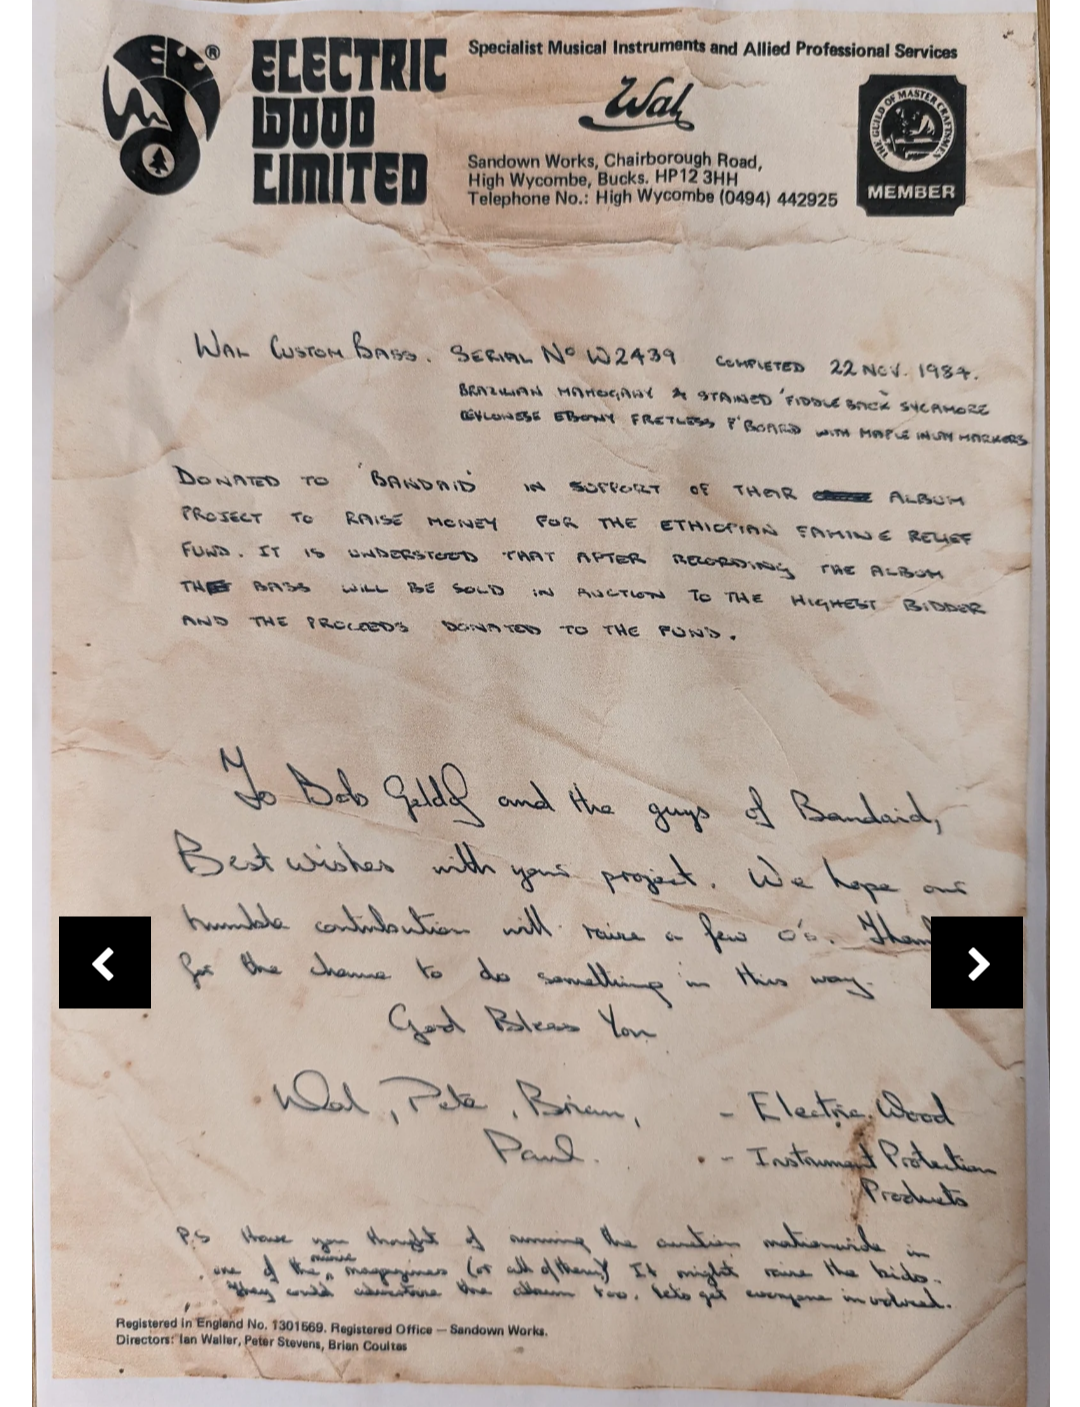 EWS ®
ELECTRIC
WOOD
LIMITED
Specialist Musical Instruments and Allied Professional Services
Wal
Sandown Works, Chairborough Road,
High Wycombe, Bucks. HP12 3HH
Telephone No.: High Wycombe (0494) 442925
THE GUILD OF MASTER CRAFTSMEN
MEMBER
WAL CUSTOM BASS. SERIAL No W2439 COMPLETED 22 NOV. 1984.
BRAZILIAN MAHOGANY & STAINED 'FIDDLE BACK' SYCAMORE
CEYLONESE EBONY FRETLESS F'BOARD WITH MAPLE INLAY MARKERS
DONATED TO 'BANDAID' IN SUPPORT OF THEIR ALBUM
PROJECT TO RAISE MONEY FOR THE ETHIOPIAN FAMINE RELIEF
FUND. IT IS UNDERSTOOD THAT AFTER RECORDING THE ALBUM
THE BASS WILL BE SOLD IN AUCTION TO THE HIGHEST BIDDER
AND THE PROCEEDS DONATED TO THE FUND.
To Bob Geldof and the guys of Bandaid,
Best wishes with your project. We hope our
humble contribution will raise a few o's.
for the chance to do something in this way.
God Bless You
Wal, Pete, Brian, - Electric Wood
Paul. - Instrument Protection
Products
P.S Have you thought of running the auction nationwide in
one of the music magazines (or all of them)? It might raise the bids.
They could advertise the album too. Let's get everyone involved.
Registered in England No. 1301569. Registered Office — Sandown Works.
Directors: Ian Waller, Peter Stevens, Brian Coultas